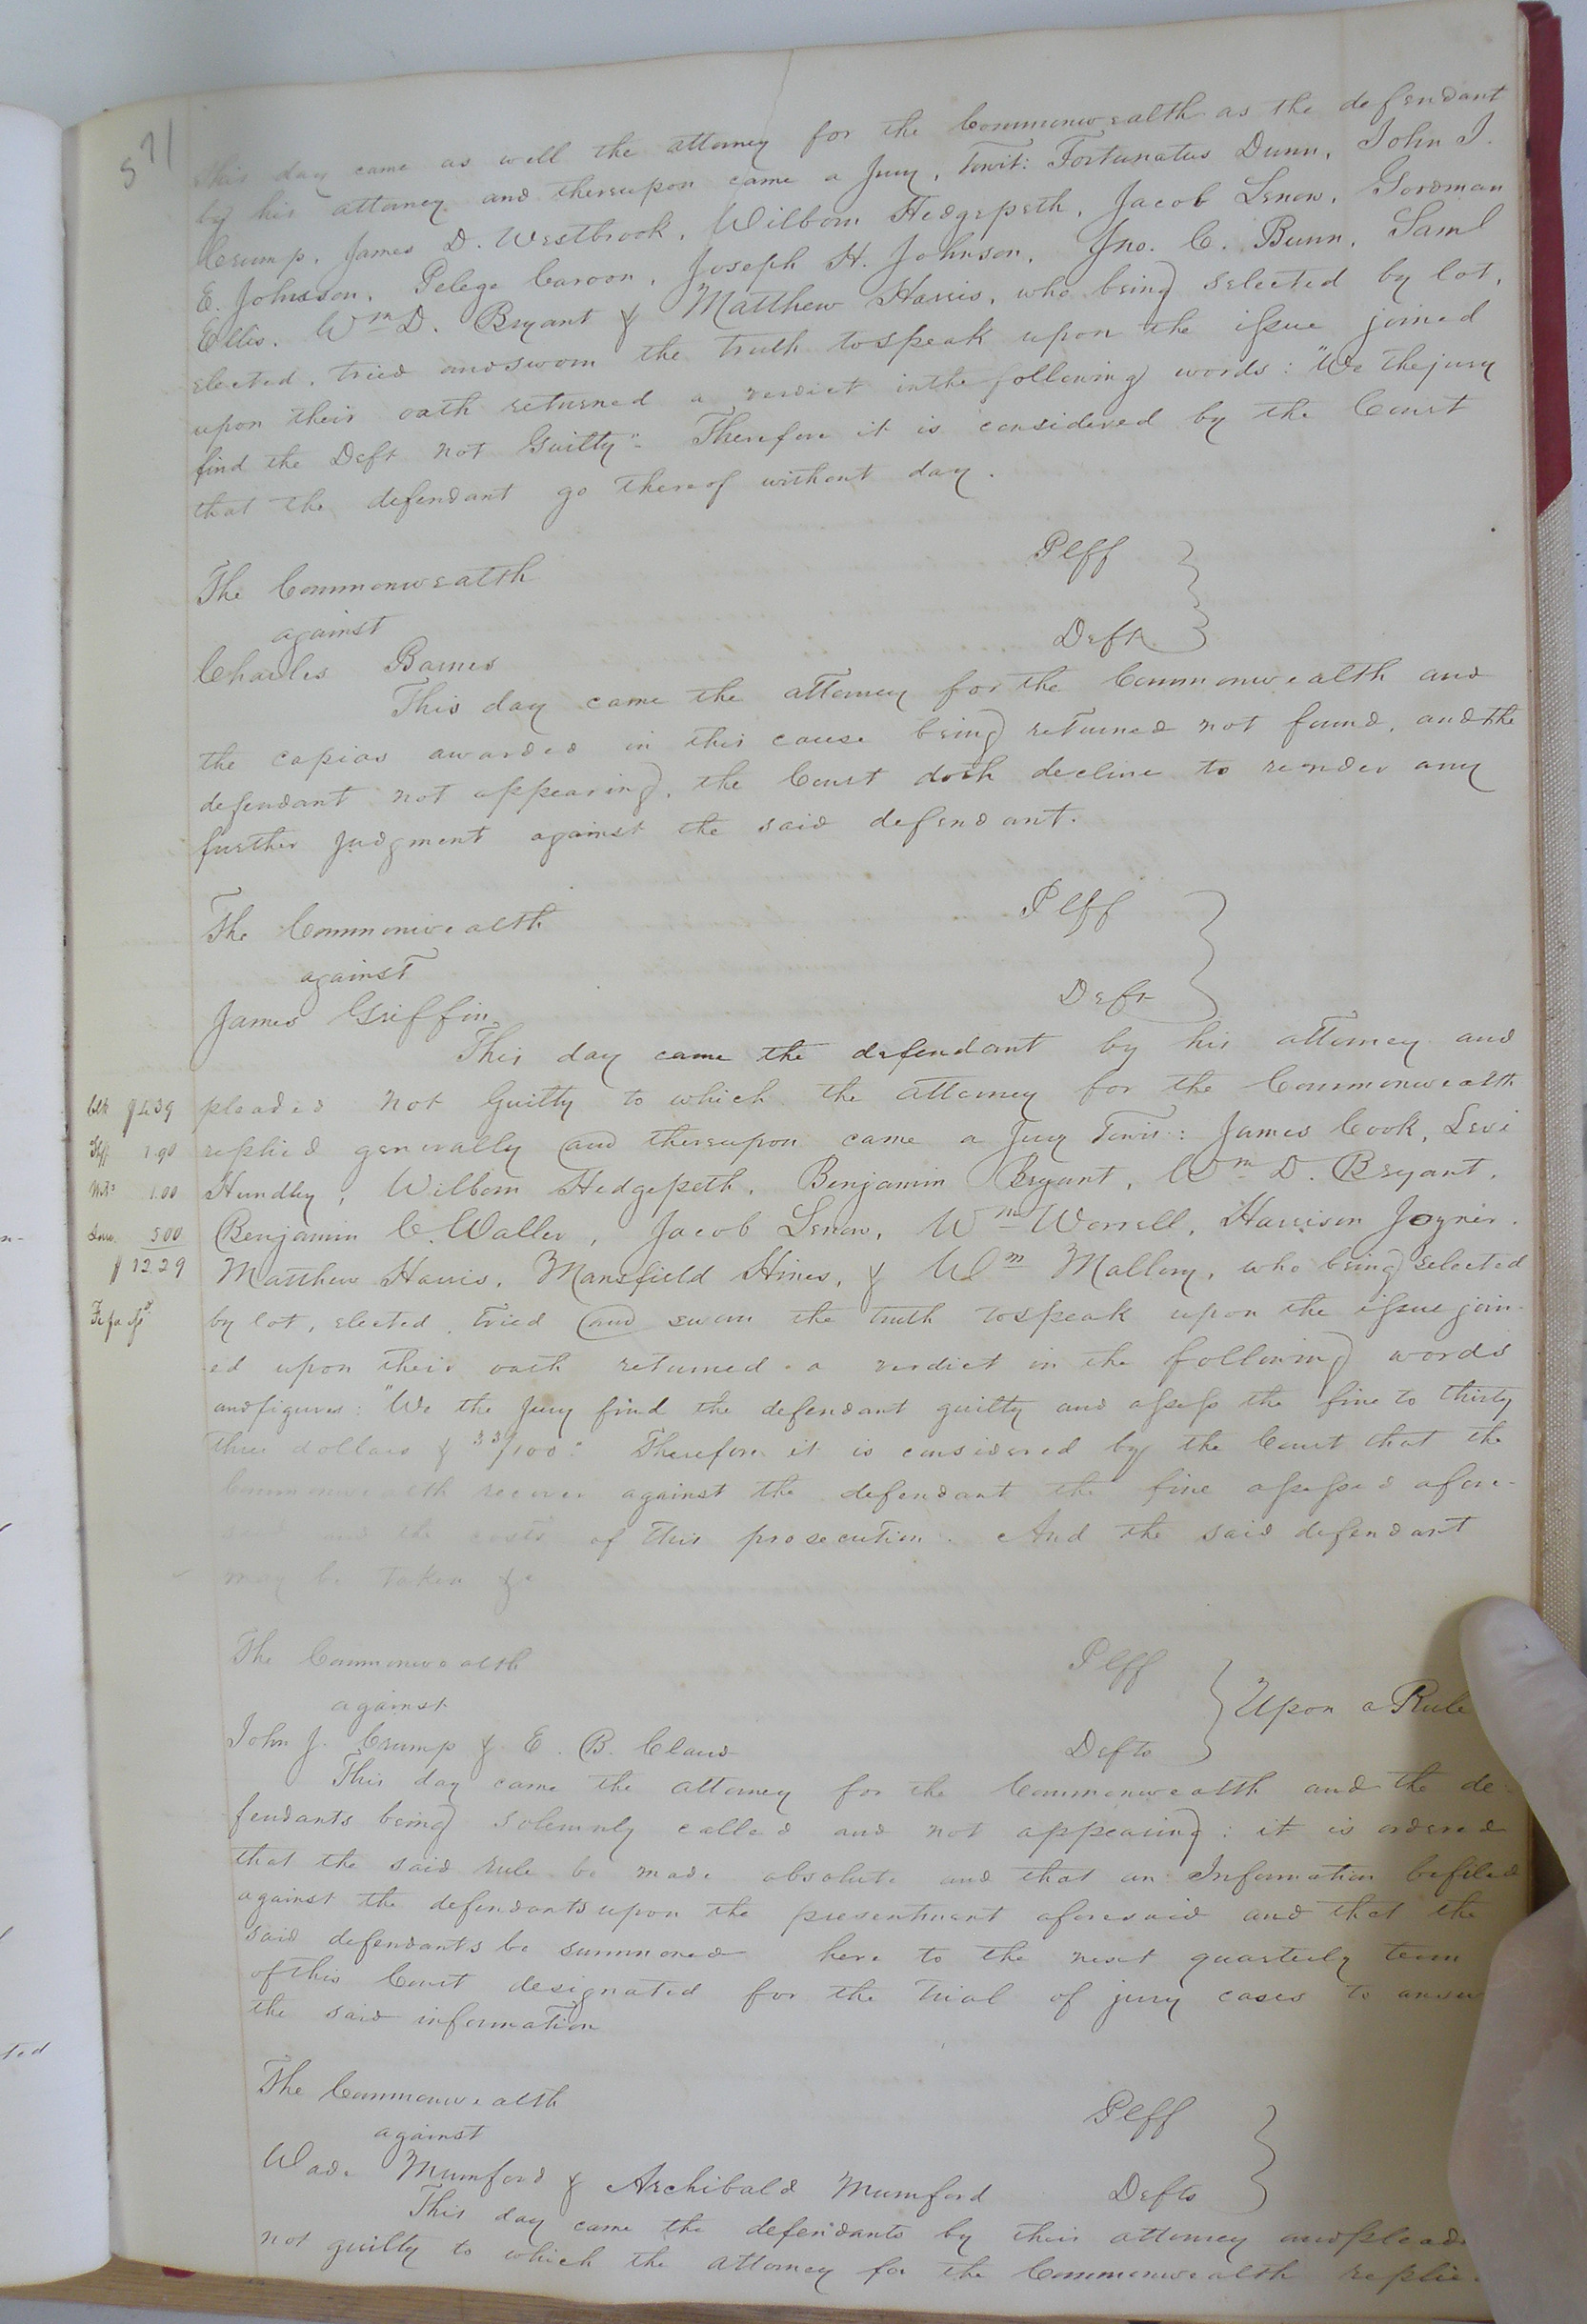 571
This day came as well the attorney for the Commonwealth as the defendant
by his attorney and thereupon came a Jury, Towit: Fortunatus Dunn, John J.
Crump, James D. Westbrook, Wilborn Hedgepeth, Jacob Lenow, Gordman
E. Johnson, Pelege Caroon, Joseph H. Johnson, Jno. C. Bunn, Saml
Ellis, Wm D. Bryant & Matthew Harris, who being selected by lot,
elected, tried and sworn the truth to speak upon the issue joined
upon their oath returned a verdict in the following words: "We the jury
find the Deft not Guilty". Therefore it is considered by the Court
that the defendant go thereof without day.
The Commonwealth Plff
against
Charles Barnes Deft
This day came the attorney for the Commonwealth and
the capias awarded in this cause being returned not found, and the
defendant not appearing, the Court doth decline to render any
further Judgment against the said defendant.
The Commonwealth Plff
against
James Griffin Deft
This day came the defendant by his attorney and
pleaded not Guilty to which the attorney for the Commonwealth
replied generally and thereupon came a Jury Towit: James Cook, Levi
Hundley, Wilborn Hedgepeth, Benjamin Bryant, Wm D. Bryant,
Benjamin C. Waller, Jacob Lenow, Wm Worrell, Harrison Joyner,
Matthew Harris, Mansfield Hines, & Wm Mallory, who being selected
by lot, elected, tried and sworn the truth to speak upon the issue join-
ed upon their oath returned a verdict in the following words
and figures: "We the Jury find the defendant guilty and assess the fine to thirty
three dollars & 33/100". Therefore it is considered by the Court that the
Commonwealth recover against the defendant the fine assessed afore-
said and the costs of this prosecution. And the said defendant
may be taken &c
Clk $4.39
Shff 1.90
1.00
5.00
$12.29
Fi fa
The Commonwealth Plff
against
John J. Crump & E. B. Claud Defts
Upon a Rule
This day came the attorney for the Commonwealth and the de-
fendants being solemnly called and not appearing: it is ordered
that the said rule be made absolute and that an Information be filed
against the defendants upon the presentment aforesaid and that the
said defendants be summoned here to the next quarterly term
of this Court designated for the trial of jury cases to answ
the said information
The Commonwealth Plff
against
Wade Mumford & Archibald Mumford Defts
This day came the defendants by their attorney and plead
not guilty to which the attorney for the Commonwealth replie